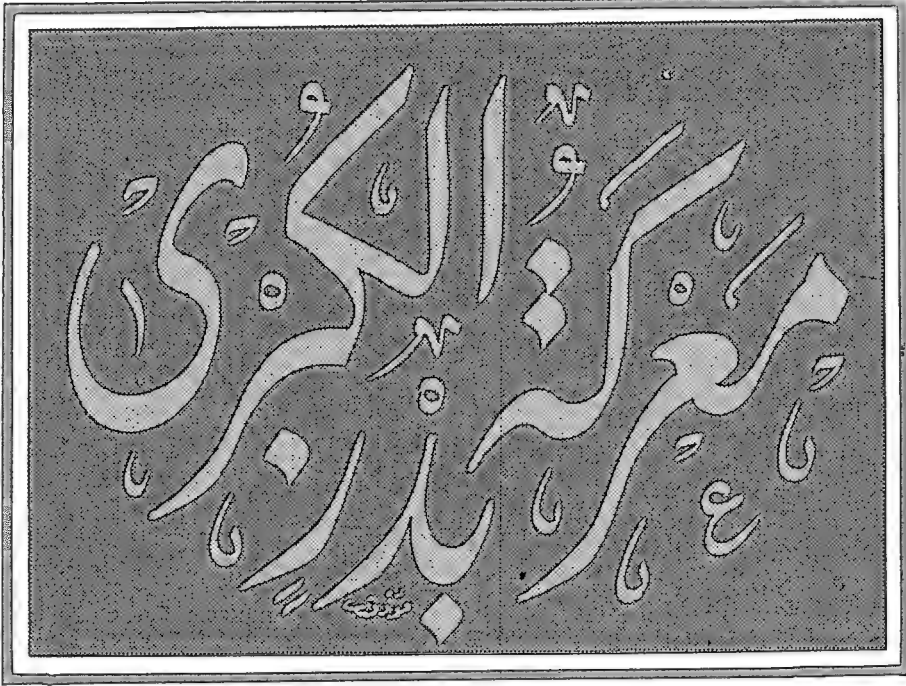 مَعْرَكَةُ بَدْرٍ الْكُبْرَى